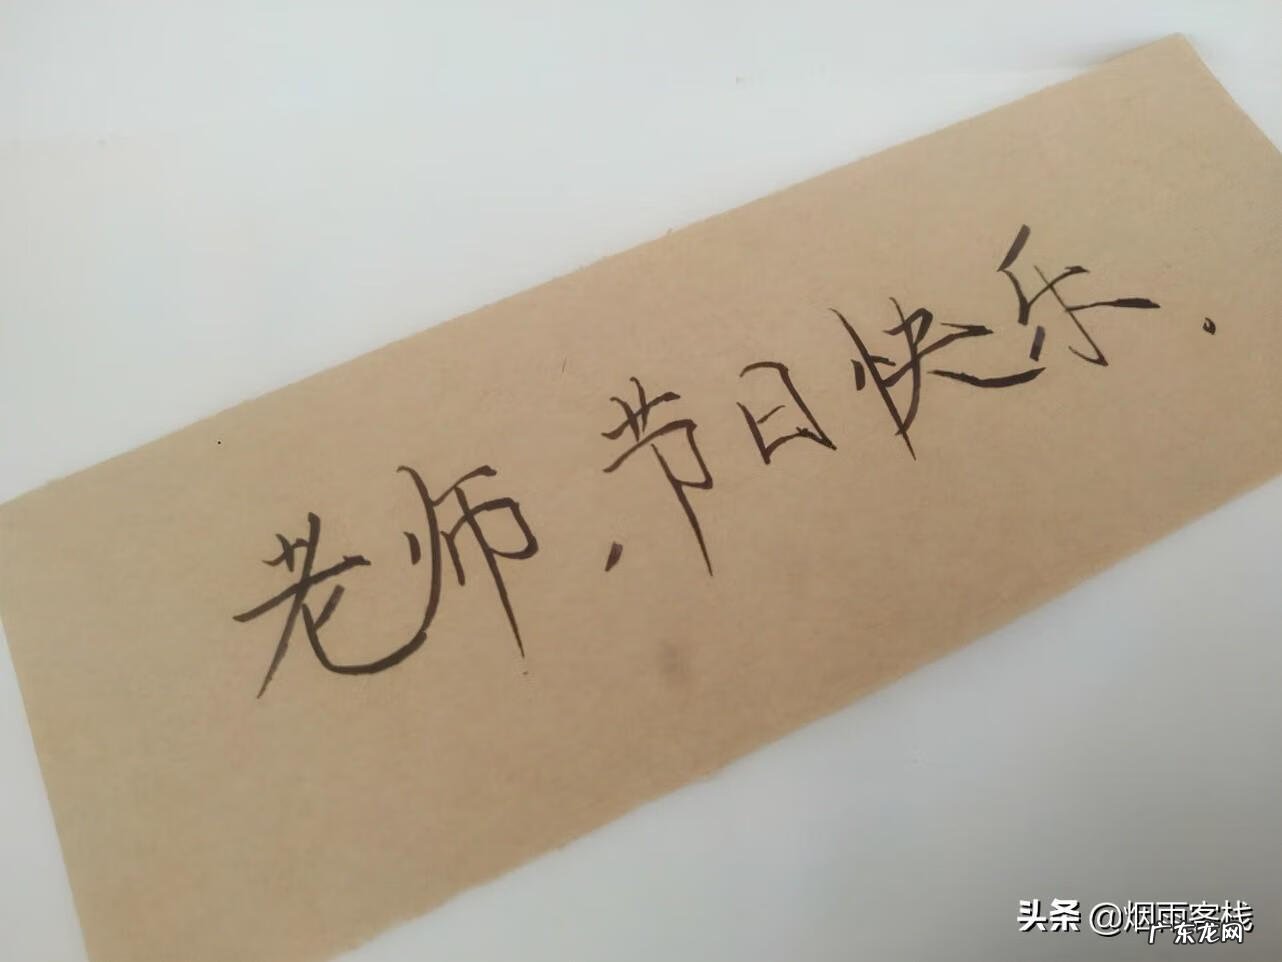 老师，节日快乐。
头条 @烟雨客栈
广东龙网